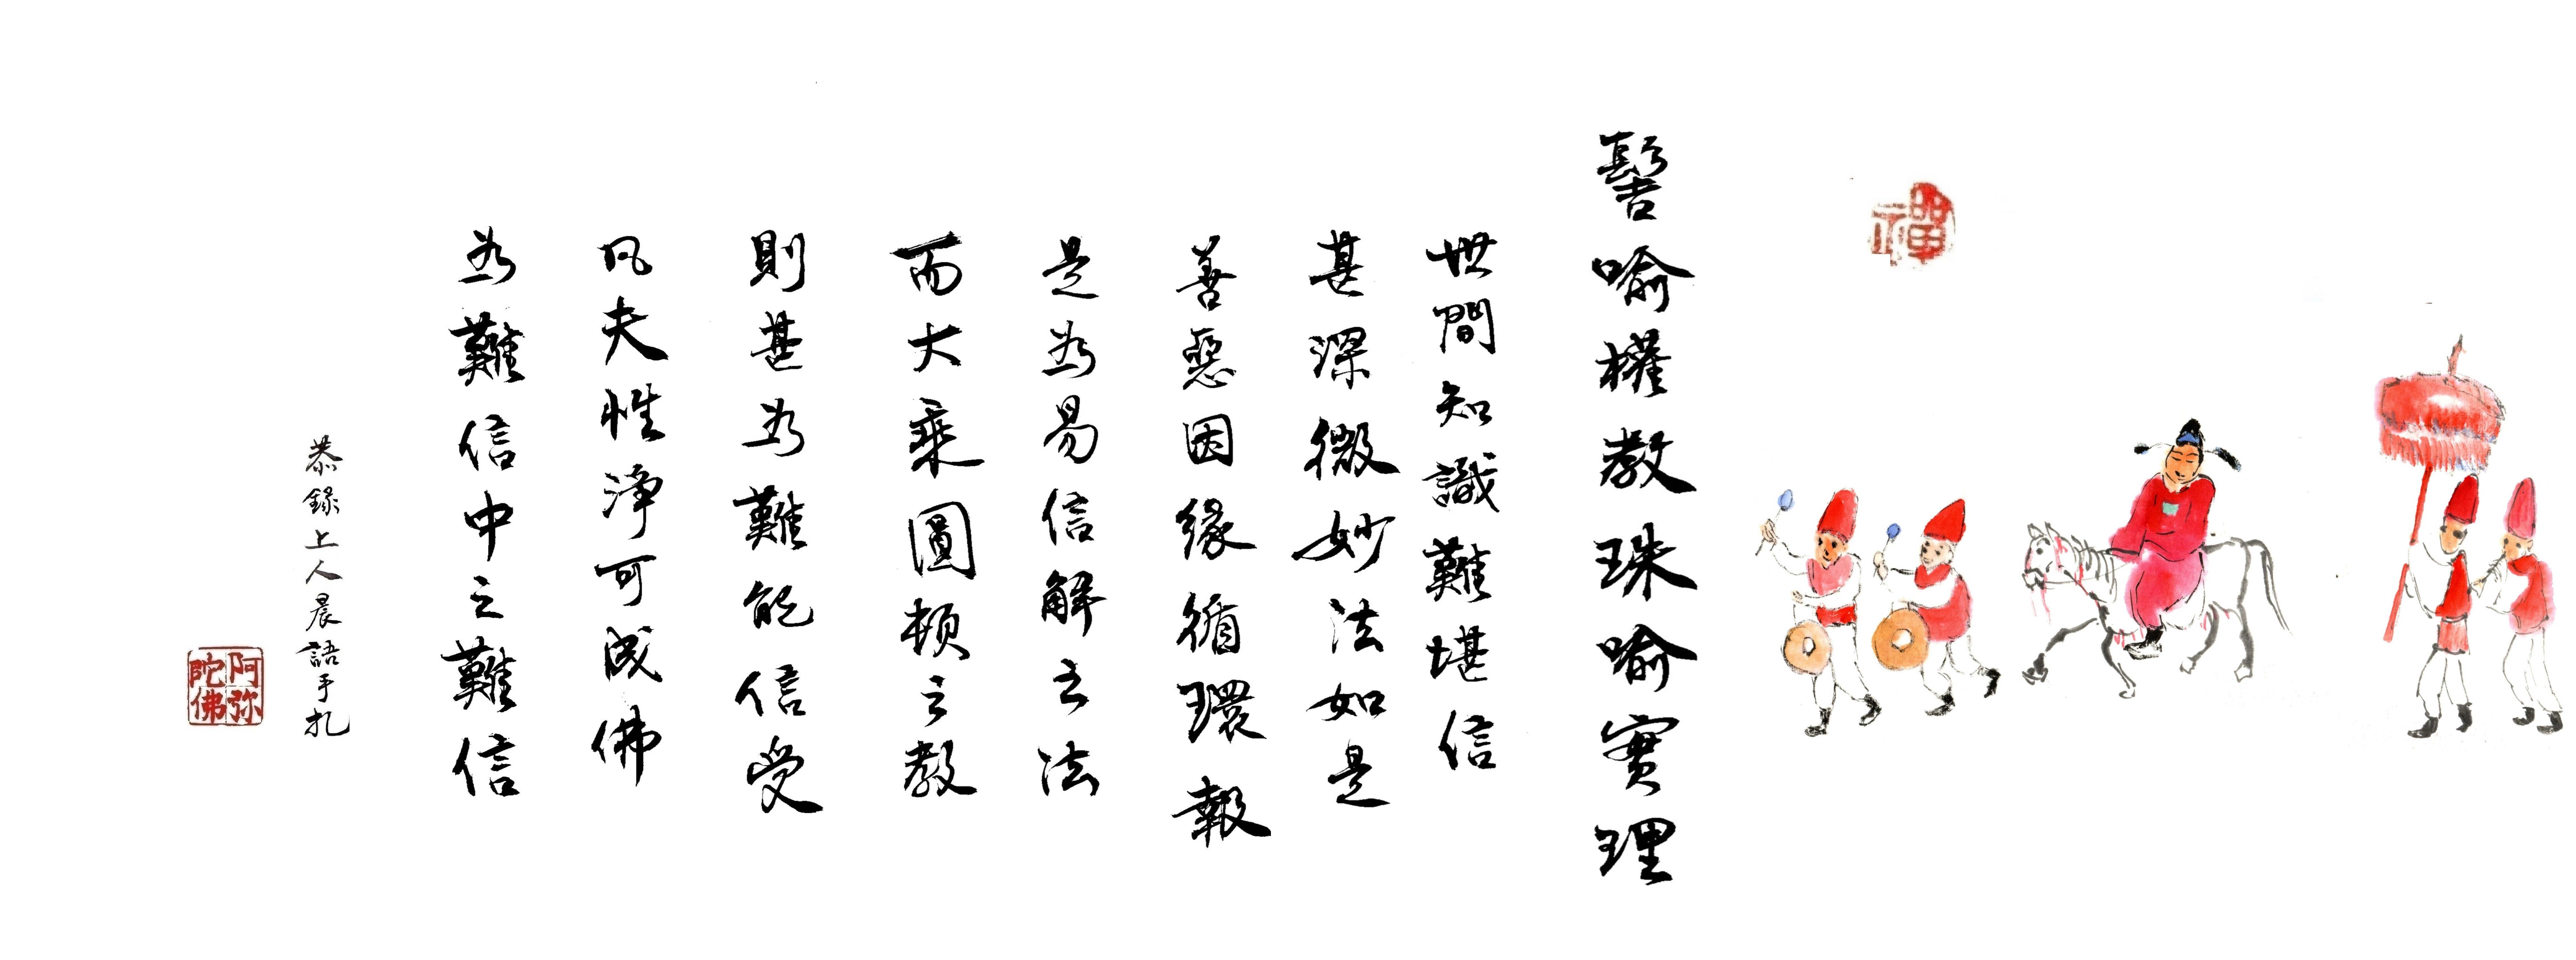 禪
髻喻權教珠喻實理
世間知識難堪信
甚深微妙法如是
善惡因緣循環報
是為易信解之法
而大乘圓頓之教
則甚為難能信受
凡夫性淨可成佛
為難信中之難信
恭錄上人晨語手札
阿弥陀佛